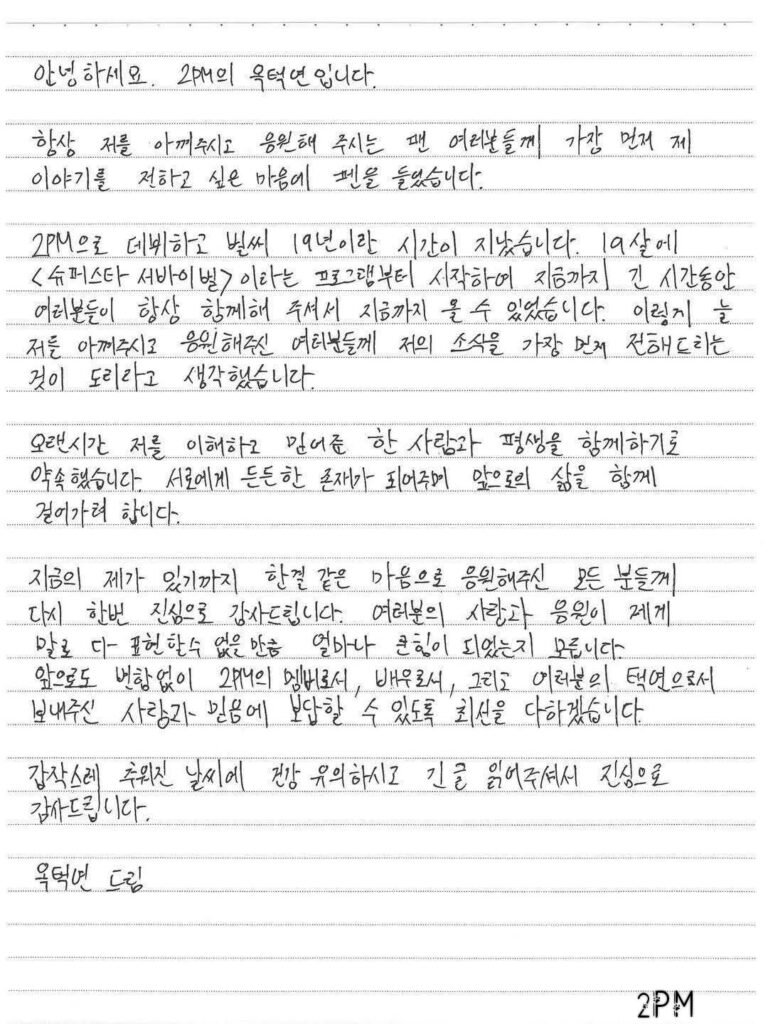 안녕하세요. 2PM의 옥택연입니다.
항상 저를 아껴주시고 응원해 주시는 팬 여러분들께 가장 먼저 제
이야기를 전하고 싶은 마음에 펜을 들었습니다.
2PM으로 데뷔하고 벌써 19년이란 시간이 지났습니다. 19살에
<슈퍼스타 서바이벌>이라는 프로그램부터 시작하여 지금까지 긴 시간동안
여러분들이 항상 함께해 주셔서 지금까지 올 수 있었습니다. 이렇게 늘
저를 아껴주시고 응원해주신 여러분들께 저의 소식을 가장 먼저 전해드리는
것이 도리라고 생각했습니다.
오랜시간 저를 이해하고 믿어준 한 사람과 평생을 함께하기로
약속했습니다. 서로에게 든든한 존재가 되어주며 앞으로의 삶을 함께
걸어가려 합니다.
지금의 제가 있기까지 한결 같은 마음으로 응원해주신 모든 분들께
다시 한번 진심으로 감사드립니다. 여러분의 사랑과 응원이 제게
말로 다 표현할수 없을만큼 얼마나 큰힘이 되었는지 모릅니다.
앞으로도 변함없이 2PM의 멤버로서, 배우로서, 그리고 여러분의 택연으로서
보내주신 사랑과 믿음에 보답할 수 있도록 최선을 다하겠습니다.
갑작스레 추워진 날씨에 건강 유의하시고 긴 글 읽어주셔서 진심으로
감사드립니다.
옥택연 드림
2PM